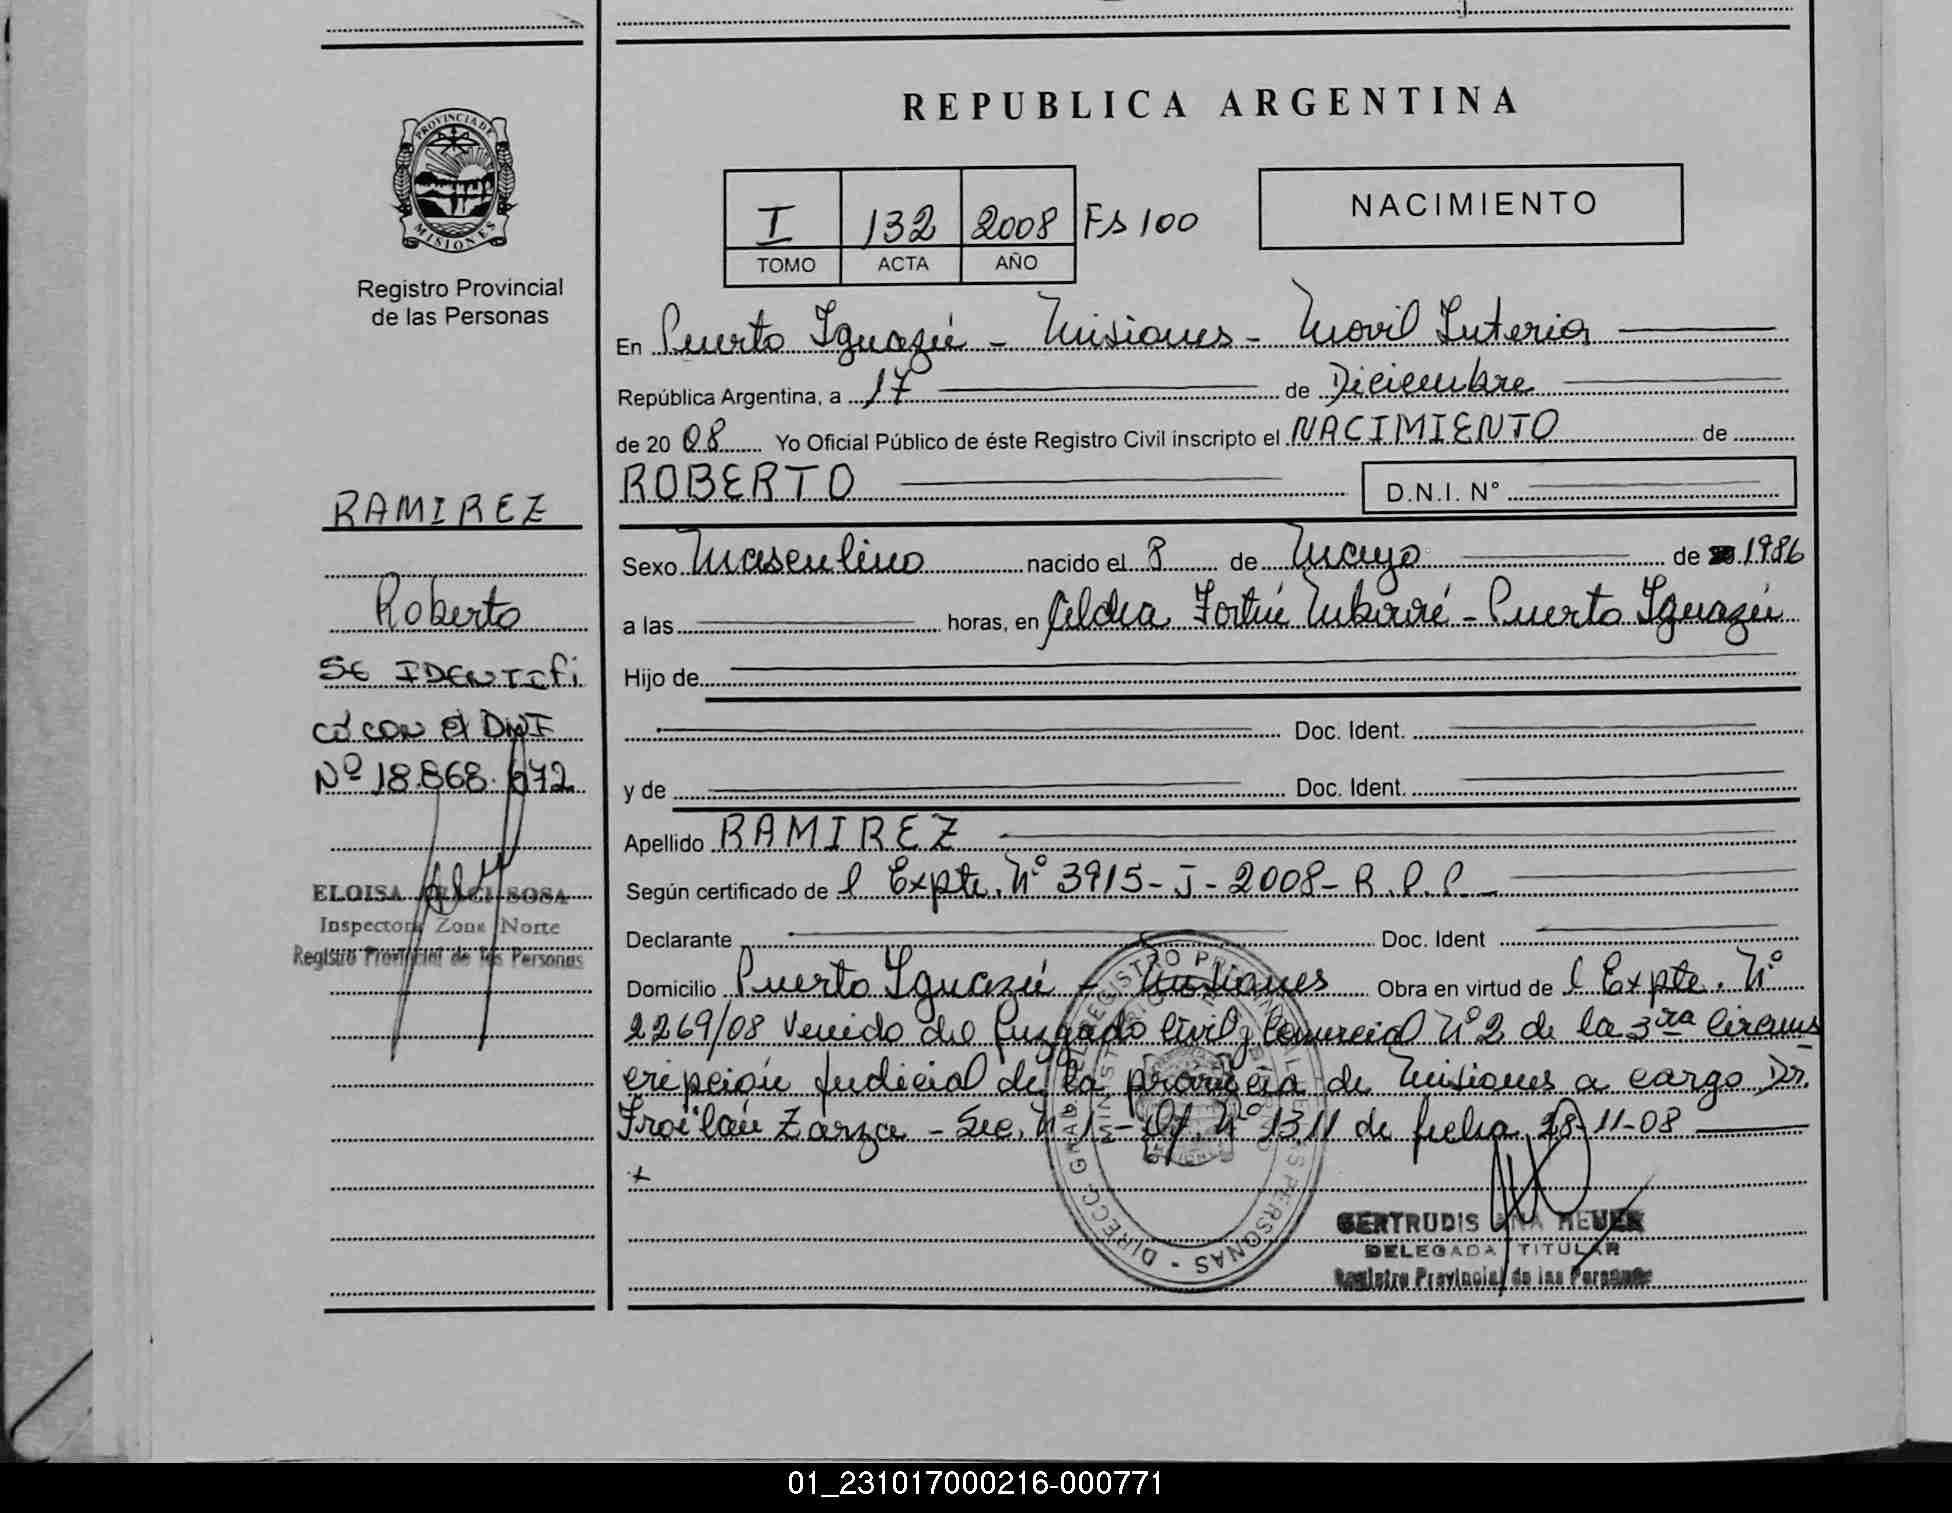 REPUBLICA ARGENTINA
PROVINCIA DE
MISIONES
Registro Provincial
de las Personas
I 132 2008 Fs 100
TOMO ACTA AÑO
NACIMIENTO
En Puerto Iguazú - Misiones - Movil Interior
República Argentina, a 17 de Diciembre
de 20 08 Yo Oficial Público de éste Registro Civil inscripto el NACIMIENTO de
ROBERTO D.N.I. N°
Sexo Masculino nacido el 8 de Mayo de 1986
a las horas, en Aldea Fortín Mbororé - Puerto Iguazú
Hijo de
Doc. Ident.
y de Doc. Ident.
Apellido RAMIREZ
Según certificado de l Expte. N° 3915-J-2008-R.P.P.
Declarante Doc. Ident
Domicilio Puerto Iguazú - Misiones Obra en virtud de l Expte. N°
2269/08 Venido del Juzgado Civil y Comercial N° 2 de la 3ra Circuns
cripción Judicial de la provincia de Misiones a cargo Dr.
Froilán Zarza - Sec. N° 1 - Of. N° 1311 de fecha 28-11-08
GERTRUDIS ANA
DELEGADA TITULAR
Registro Provincial de las Personas
RAMIREZ
Roberto
SE IDENTIFI
CÓ CON El DNI
Nº 18.868.672
ELOISA SOSA
Inspectora Zona Norte
Registro Provincial de las Personas
01_231017000216-000771